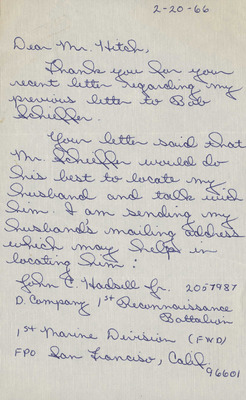 2-20-66
Dear Mr. Hitch,
Thank you for your
recent letter regarding my
previous letter to Bob
Schieffer.
Your letter said that
Mr. Schieffer would do
his best to locate my
husband and talk with
him. I am sending my
husband's mailing address
which may help in
locating him:
John C. Hadsell Jr. 2057987
D. Company 1st Reconnaissance
Battalion
1st Marine Division (FWD)
FPO San Francisco, Calif.
96601